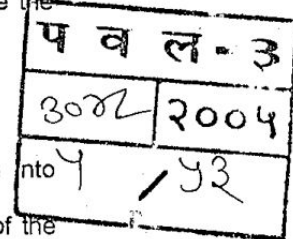 the
प व ल - ३
२००५
nto ५ / ५३
of the